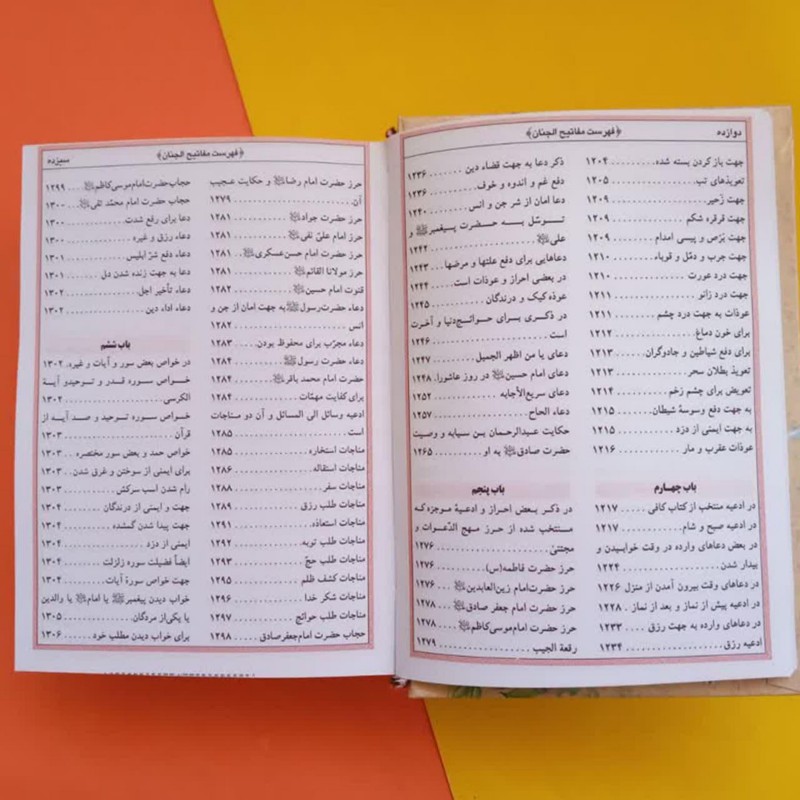 دوازده
﴿فهرست مفاتیح الجنان﴾
جهت باز کردن بسته شده ..... ۱۲۰۴
تعویذهای تب ..... ۱۲۰۵
جهت زحیر ..... ۱۲۰۹
جهت قرقره شکم ..... ۱۲۰۹
جهت بَرَص و پیسی اندام ..... ۱۲۰۹
جهت جرب و دمّل و قوباء ..... ۱۲۱۰
جهت درد عورت ..... ۱۲۱۰
جهت درد زانو ..... ۱۲۱۱
عوذات به جهت درد چشم ..... ۱۲۱۱
برای خون دماغ ..... ۱۲۱۲
برای دفع شیاطین و جادوگران ..... ۱۲۱۳
تعویذ بطلان سحر ..... ۱۲۱۳
تعویض برای چشم زخم ..... ۱۲۱۴
به جهت دفع وسوسهٔ شیطان ..... ۱۲۱۵
به جهت ایمنی از دزد ..... ۱۲۱۵
عوذات عقرب و مار ..... ۱۲۱۶
باب چهارم
در ادعیه منتخب از کتاب کافی ..... ۱۲۱۷
در ادعیه صبح و شام ..... ۱۲۱۷
در بعض دعاهای وارده در وقت خوابیدن و
بیدار شدن ..... ۱۲۲۴
در دعاهای وقت بیرون آمدن از منزل ۱۲۲۶
در ادعیه پیش از نماز و بعد از نماز . ۱۲۲۸
در دعاهای وارده به جهت رزق ..... ۱۲۳۳
ادعیه رزق ..... ۱۲۳۴
ذکر دعا به جهت قضاء دین ..... ۱۲۳۶
دفع غم و اندوه و خوف ..... ۱۲۳۶
دعا امان از شر جن و انس ..... ۱۲۴۰
توسّل به حضرت پیغمبرﷺ و
علیؑ ..... ۱۲۴۲
دعاهایی برای دفع علتها و مرضها .. ۱۲۴۳
در بعضی احراز و عوذات است ..... ۱۲۴۴
عوذه کیک و درندگان ..... ۱۲۴۵
در ذکری برای حوائج دنیا و آخرت
است ..... ۱۲۴۶
دعای یا من اظهر الجمیل ..... ۱۲۴۷
دعای امام حسینؑ در روز عاشورا . ۱۲۴۸
دعای سریع‌الأجابه ..... ۱۲۵۲
دعاء الحاح ..... ۱۲۵۷
حکایت عبدالرحمان بن سیابه و وصیت
حضرت صادقؑ به او ..... ۱۲۶۵
باب پنجم
در ذکر بعض احراز و ادعیهٔ موجزه که
منتخب شده از حرز مهج الدّعوات و
مجتنی ..... ۱۲۷۶
حرز حضرت فاطمه(س) ..... ۱۲۷۶
حرز حضرت‌امام زین‌العابدینؑ ..... ۱۲۷۶
حرز حضرت امام جعفر صادقؑ .. ۱۲۷۸
حرز حضرت امام‌موسی‌کاظمؑ .. ۱۲۷۸
رقعة الجیب ..... ۱۲۷۹
﴿فهرست مفاتیح الجنان﴾
سیزده
حرز حضرت امام رضاؑ و حکایت عجیب
آن ..... ۱۲۷۹
حرز حضرت جوادؑ ..... ۱۲۸۱
حرز امام علیّ نقیؑ ..... ۱۲۸۱
حرز حضرت امام حسن‌عسکریؑ .. ۱۲۸۱
حرز مولانا القائمؑ ..... ۱۲۸۱
قنوت امام حسینؑ ..... ۱۲۸۲
دعاء حضرت‌رسولﷺ به جهت امان از جن و
انس ..... ۱۲۸۲
دعاء مجرّب برای محفوظ بودن . ۱۲۸۳
دعاء حضرت رسولﷺ ..... ۱۲۸۴
حضرت امام محمد باقرؑ ..... ۱۲۸۴
برای کفایت مهمّات ..... ۱۲۸۴
ادعیه وسائل الی المسائل و آن دو مناجات
است ..... ۱۲۸۵
مناجات استخاره ..... ۱۲۸۵
مناجات استقاله ..... ۱۲۸۶
مناجات سفر ..... ۱۲۸۸
مناجات طلب رزق ..... ۱۲۸۹
مناجات استعاذه ..... ۱۲۹۱
مناجات طلب توبه ..... ۱۲۹۲
مناجات طلب حجّ ..... ۱۲۹۳
مناجات کشف ظلم ..... ۱۲۹۵
مناجات شکر خدا ..... ۱۲۹۶
مناجات طلب حوائج ..... ۱۲۹۷
حجاب حضرت امام‌جعفرصادق ..... ۱۲۹۸
حجاب‌حضرت‌امام‌موسی‌کاظمؑ ... ۱۲۹۹
حجاب حضرت امام محمّد تقیؑ ... ۱۳۰۰
دعا برای رفع شدت ..... ۱۳۰۰
دعاء رزق و غیره ..... ۱۳۰۰
دعاء دفع شرّ ابلیس ..... ۱۳۰۱
دعا به جهت زنده شدن دل ..... ۱۳۰۱
دعاء تأخیر اجل ..... ۱۳۰۲
دعاء اداء دین ..... ۱۳۰۲
باب ششم
در خواص بعض سور و آیات و غیره. ۱۳۰۲
خواص سوره قدر و توحیدو آیة
الکرسی ..... ۱۳۰۲
خواص سوره توحید و صد آیه از
قرآن ..... ۱۳۰۳
خواص حمد و بعض سور مختصره .. ۱۳۰۳
برای ایمنی از سوختن و غرق شدن .. ۱۳۰۳
رام شدن اسب سرکش ..... ۱۳۰۳
جهت و ایمنی از درندگان ..... ۱۳۰۴
جهت پیدا شدن گمشده ..... ۱۳۰۴
ایمنی از دزد ..... ۱۳۰۴
ایضاً فضیلت سوره زلزلت ..... ۱۳۰۴
جهت خواص سورهٔ آیات ..... ۱۳۰۴
خواب دیدن پیغمبرﷺ یا امامؑ یا والدین
یا یکی‌از مردگان ..... ۱۳۰۵
برای خواب دیدن مطلب خود ..... ۱۳۰۶